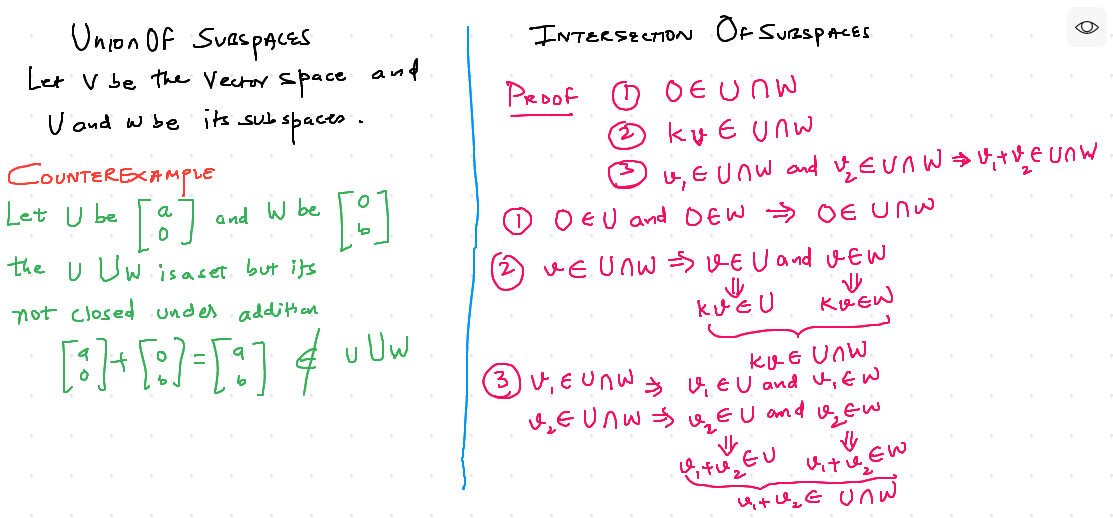 Union Of Subspaces
Let V be the Vector space and
U and W be its subspaces.
COUNTEREXAMPLE
Let U be [a 0] and W be [0 b]
the U ∪ W is a set but its
not closed under addition
[a 0] + [0 b] = [a b] ∉ U ∪ W
INTERSECTION OF SUBSPACES
PROOF ① 0 ∈ U ∩ W
② kv ∈ U ∩ W
③ v₁ ∈ U ∩ W and v₂ ∈ U ∩ W ⇒ v₁ + v₂ ∈ U ∩ W
① 0 ∈ U and 0 ∈ W ⇒ 0 ∈ U ∩ W
② v ∈ U ∩ W ⇒ v ∈ U and v ∈ W
⇓ ⇓
kv ∈ U kv ∈ W
kv ∈ U ∩ W
③ v₁ ∈ U ∩ W ⇒ v₁ ∈ U and v₁ ∈ W
v₂ ∈ U ∩ W ⇒ v₂ ∈ U and v₂ ∈ W
⇓ ⇓
v₁ + v₂ ∈ U v₁ + v₂ ∈ W
v₁ + v₂ ∈ U ∩ W